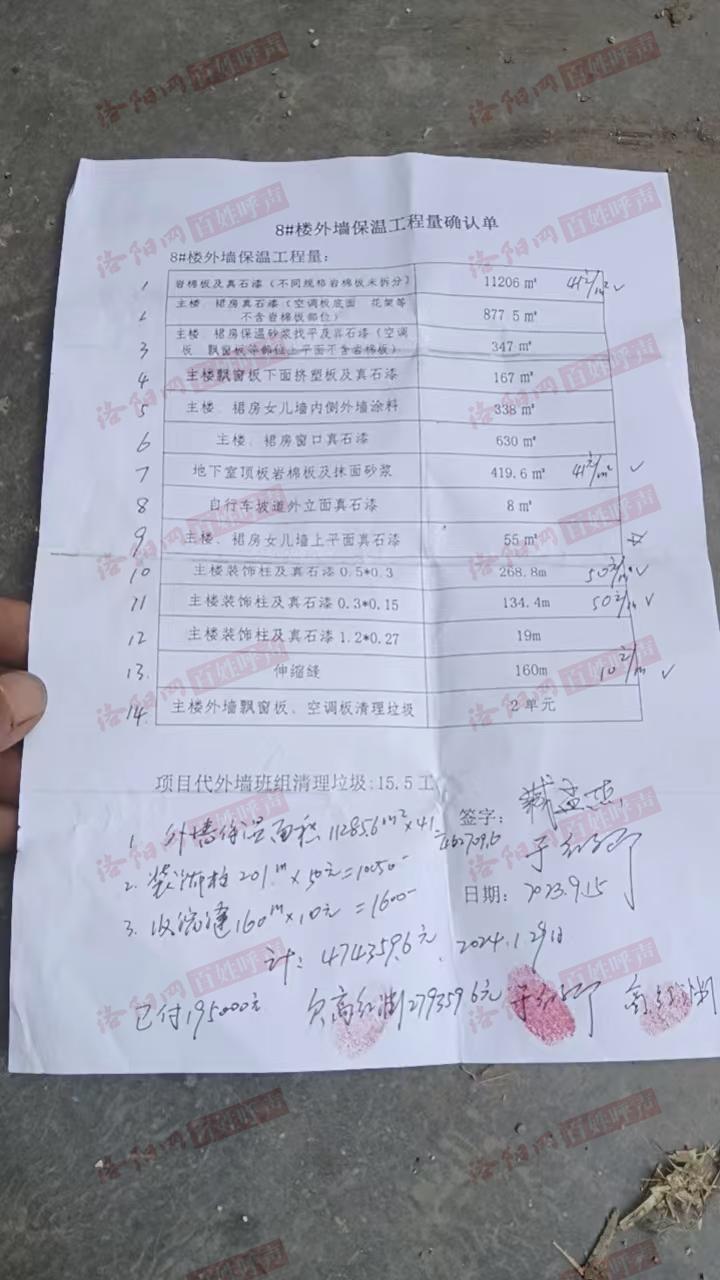 8#楼外墙保温工程量确认单
8#楼外墙保温工程量:
1 岩棉板及真石漆(不同规格岩棉板未拆分) 11206 m² 41元/m² √
2 主楼、裙房真石漆(空调板底面 花架等
不含岩棉板部位) 877 5 m²
3 主楼、裙房保温砂浆找平及真石漆(空调
板 飘窗板等部位上平面不含岩棉板) 347 m²
4 主楼飘窗板下面挤塑板及真石漆 167 m²
5 主楼、裙房女儿墙内侧外墙涂料 338 m²
6 主楼、裙房窗口真石漆 630 m²
7 地下室顶板岩棉板及抹面砂浆 419.6 m² 41元/m² √
8 自行车坡道外立面真石漆 8 m²
9 主楼、裙房女儿墙上平面真石漆 55 m²
10 主楼装饰柱及真石漆 0.5*0.3 268.8m 50元/m √
11 主楼装饰柱及真石漆 0.3*0.15 134.4m 50元/m √
12 主楼装饰柱及真石漆 1.2*0.27 19m
13. 伸缩缝 160m 10元/m √
14. 主楼外墙飘窗板、空调板清理垃圾 2单元
项目代外墙班组清理垃圾:15.5工
签字:
1. 外墙保温面积11285.6m²×41=462709.6
2. 装饰柱201m×50元=10050-
日期: 2023.9.15
3. 160m×10元=1600-
计: 474359.6元. 2024.1.29日
已付195000元 欠高红 279359.6元
洛阳网 百姓呼声
洛阳网 百姓呼声
洛阳网 百姓呼声
洛阳网 百姓呼声
洛阳网 百姓呼声
洛阳网 百姓呼声
洛阳网 百姓呼声
洛阳网 百姓呼声
洛阳网 百姓呼声
洛阳网 百姓呼声
洛阳网 百姓呼声
洛阳网 百姓呼声